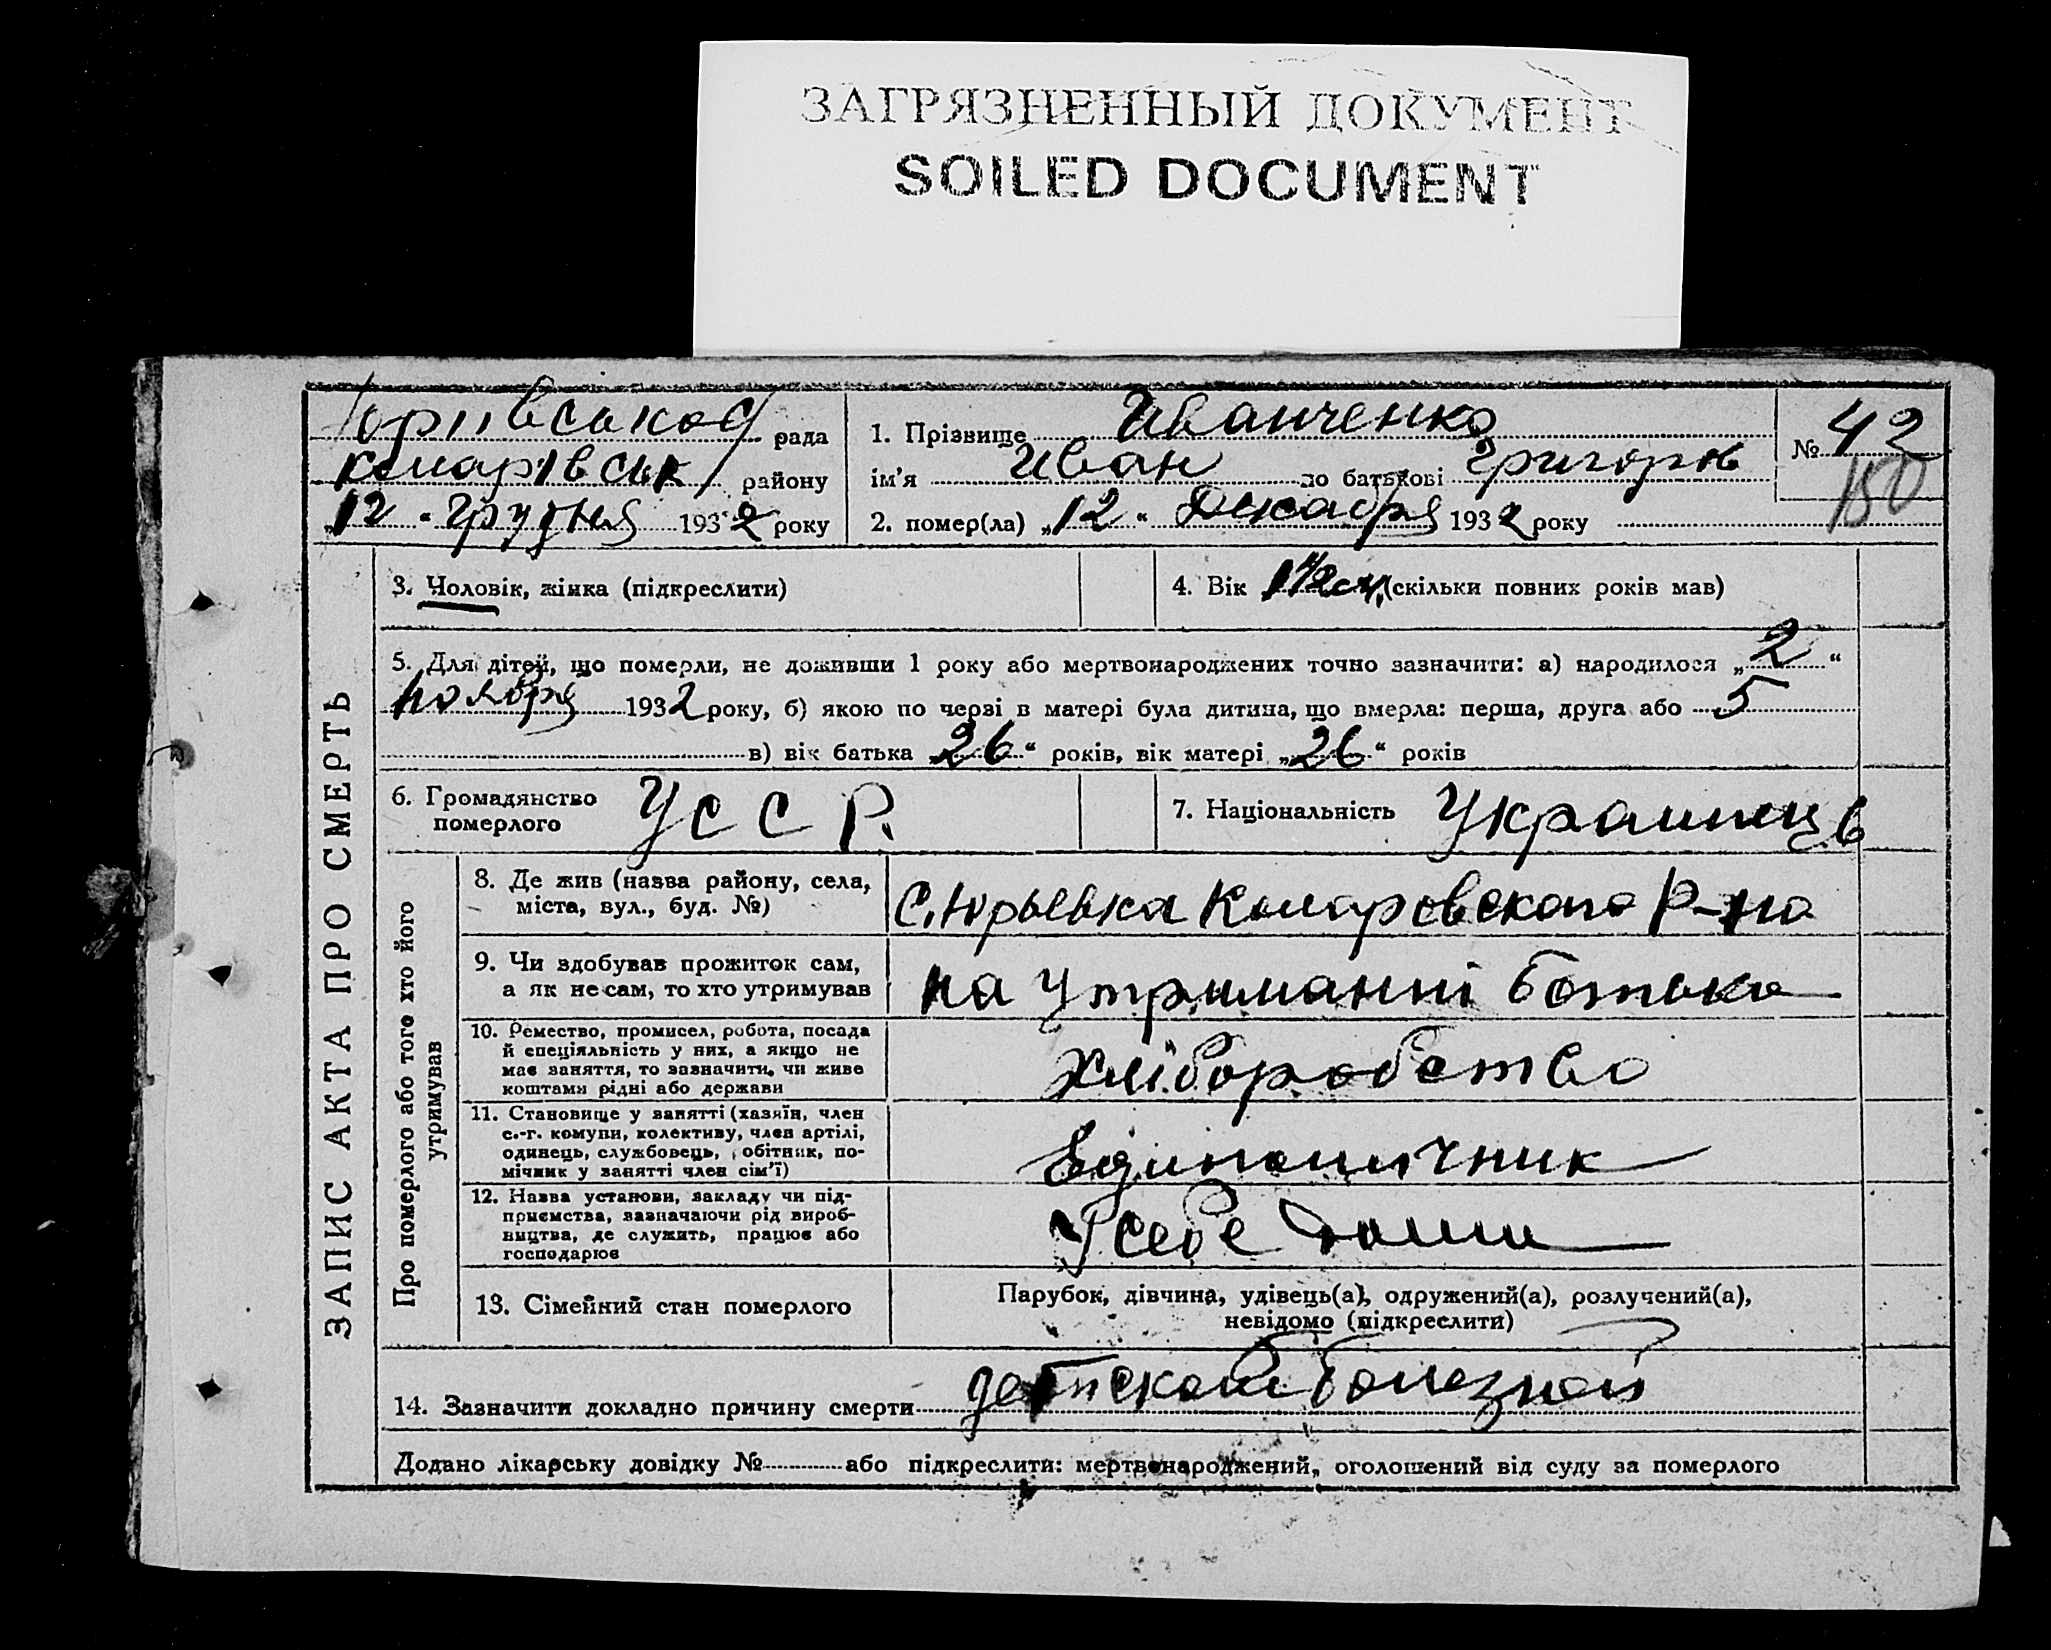 ЗАГРЯЗНЕННЫЙ ДОКУМЕНТ
SOILED DOCUMENT
Юріівськой рада
комарівськ району
„12“ Грудня 1932 року
1. Прізвище Иванченко
ім'я Иван по батькові Григоров
2. помер(ла) „12“ Декабря 1932 року
№ 42
150
ЗАПИС АКТА ПРО СМЕРТЬ
3. Чоловік, жінка (підкреслити)
4. Вік 1 1/2 (скільки повних років мав)
5. Для дітей, що померли, не доживши 1 року або мертвонароджених точно зазначити: а) народилося „2“
ноября 1932 року, б) якою по черзі в матері була дитина, що вмерла: перша, друга або 5
в) вік батька „26“ років, вік матері „26“ років
6. Громадянство
померлого
УССР.
7. Національність Украинець
Про померлого або того хто його
утримував
8. Де жив (назва району, села,
міста, вул., буд. №)
С. Юрьевка Комаровского Р-на
9. Чи здобував прожиток сам,
а як не сам, то хто утримував
на утриманні батька
10. Ремество, промисел, робота, посада
й спеціяльність у них, а якщо не
має заняття, то зазначити, чи живе
коштами рідні або держави
Хліборобство
11. Становище у занятті (хазяїн, член
с.-г. комуни, колективу, член артілі,
одинець, службовець, робітник, по-
мічник у занятті член сім'ї)
Единоличник
12. Назва установи, закладу чи під-
приємства, зазначаючи рід вироб-
ництва, де служить, працює або
господарює
У себе дома
13. Сімейний стан померлого
Парубок, дівчина, удівець(а), одружений(а), розлучений(а),
невідомо (підкреслити)
14. Зазначити докладно причину смерти детской болезной
Додано лікарську довідку № або підкреслити: мертвонароджений, оголошений від суду за померлого